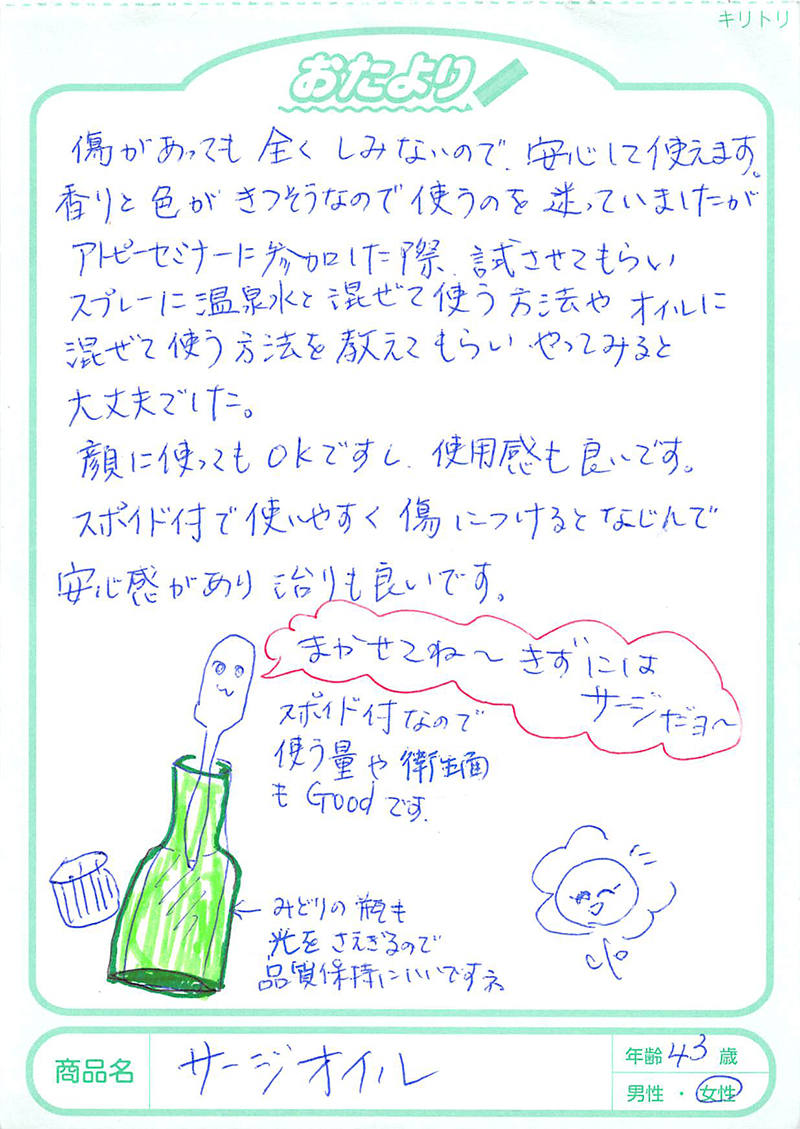 キリトリ
おたより
傷があっても 全く しみないので、安心して使えます。
香りと色が きつそうなので使うのを 迷っていましたが
アトピーセミナーに参加した際、試させてもらい
スプレーに温泉水と混ぜて使う方法や オイルに
混ぜて使う方法を教えてもらい、やってみると
大丈夫でした。
顔に使ってもOKですし、使用感も良いです。
スポイド付で使いやすく 傷につけるとなじんで
安心感があり 治りも良いです。
まかせてね〜 きずには
サージだヨ〜
スポイド付なので
使う量や衛生面
も Good です。
←みどりの瓶も
光をさえぎるので
品質保持にいいですネ
商品名 サージオイル
年齢 43 歳
男性 ・ 女性